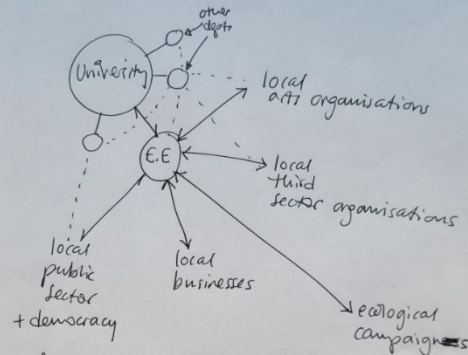 other
depts
University
local
arts organisations
E.E
local
third
sector organisations
local
public
sector
+ democracy
local
businesses
ecological
campaigns